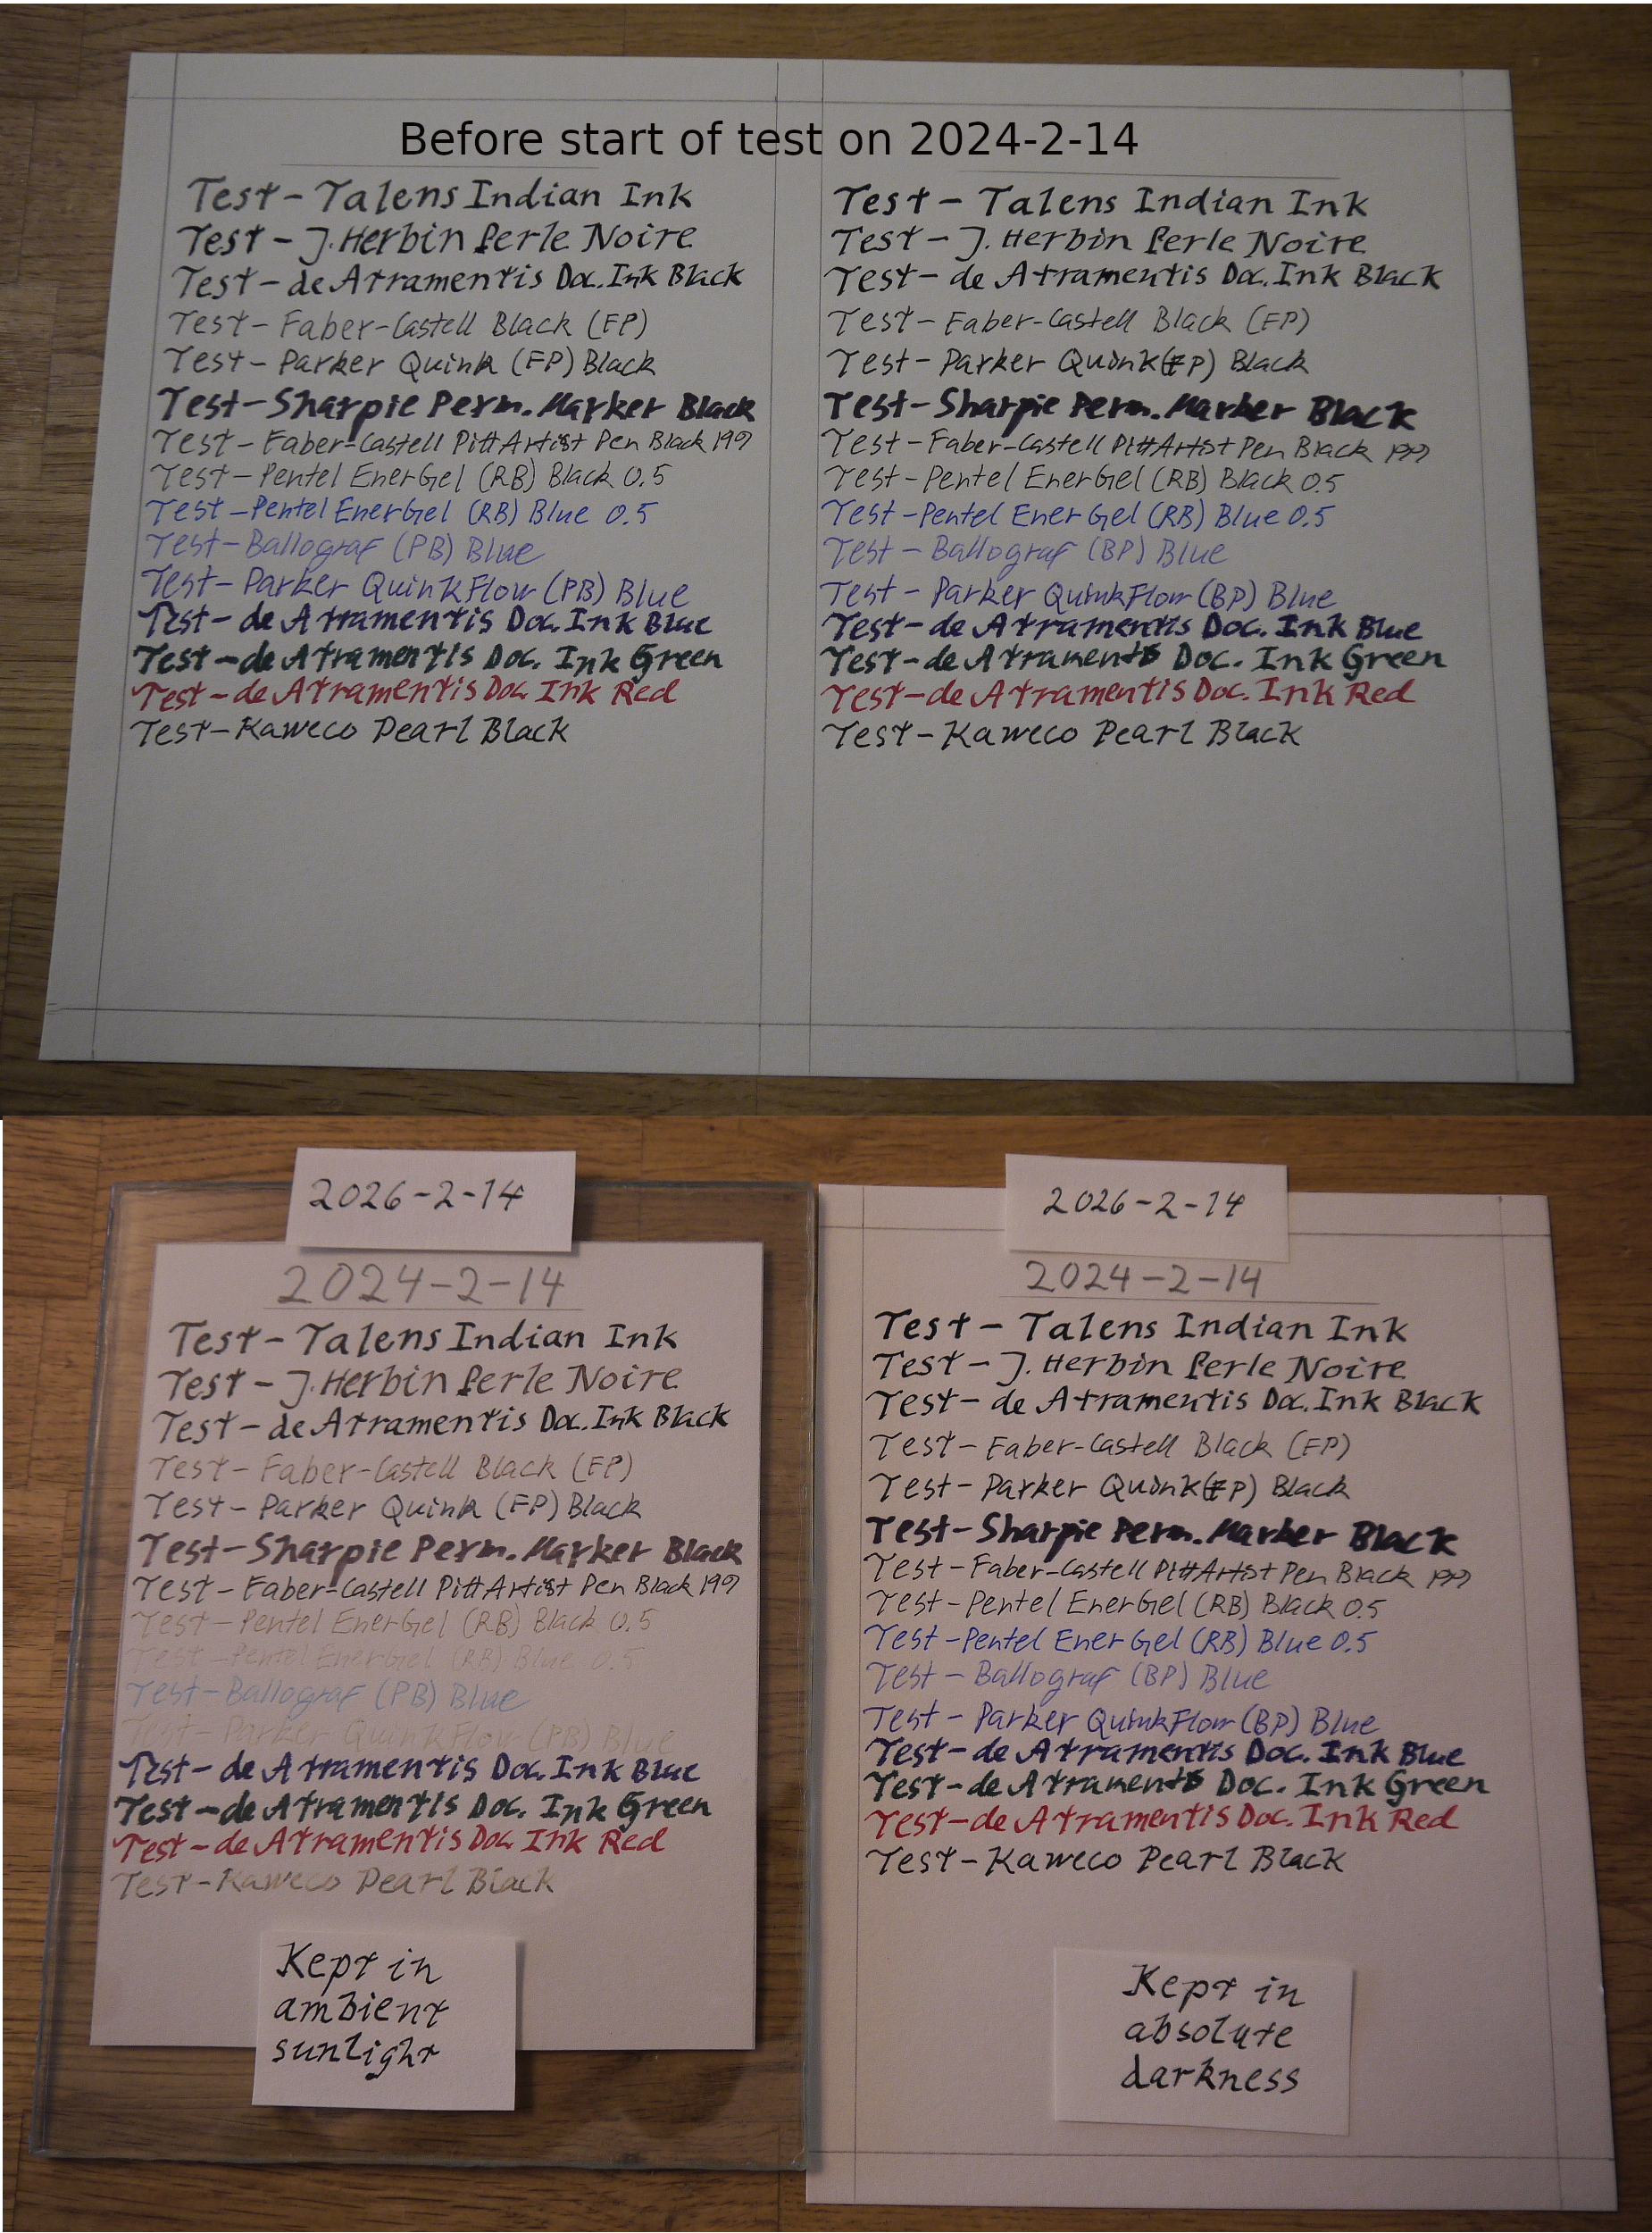 Before start of test on 2024-2-14
Test - Talens Indian Ink
Test - J. Herbin Perle Noire
Test - de Atramentis Doc. Ink Black
Test - Faber-Castell Black (FP)
Test - Parker Quink (FP) Black
Test - Sharpie Perm. Marker Black
Test - Faber-Castell Pitt Artist Pen Black 199
Test - Pentel EnerGel (RB) Black 0.5
Test - Pentel EnerGel (RB) Blue 0.5
Test - Ballograf (PB) Blue
Test - Parker QuinkFlow (PB) Blue
Test - de Atramentis Doc. Ink Blue
Test - de Atramentis Doc. Ink Green
Test - de Atramentis Doc. Ink Red
Test - Kaweco Pearl Black
Test - Talens Indian Ink
Test - J. Herbin Perle Noire
Test - de Atramentis Doc. Ink Black
Test - Faber-Castell Black (FP)
Test - Parker Quink (FP) Black
Test - Sharpie Perm. Marker Black
Test - Faber-Castell Pitt Artist Pen Black 199
Test - Pentel EnerGel (RB) Black 0.5
Test - Pentel EnerGel (RB) Blue 0.5
Test - Ballograf (BP) Blue
Test - Parker QuinkFlow (BP) Blue
Test - de Atramentis Doc. Ink Blue
Test - de Atramentis Doc. Ink Green
Test - de Atramentis Doc. Ink Red
Test - Kaweco Pearl Black
2026-2-14
2024-2-14
Test - Talens Indian Ink
Test - J. Herbin Perle Noire
Test - de Atramentis Doc. Ink Black
Test - Faber-Castell Black (FP)
Test - Parker Quink (FP) Black
Test - Sharpie Perm. Marker Black
Test - Faber-Castell Pitt Artist Pen Black 199
Test - Pentel EnerGel (RB) Black 0.5
Test - Pentel EnerGel (RB) Blue 0.5
Test - Ballograf (PB) Blue
Test - Parker QuinkFlow (PB) Blue
Test - de Atramentis Doc. Ink Blue
Test - de Atramentis Doc. Ink Green
Test - de Atramentis Doc. Ink Red
Test - Kaweco Pearl Black
Kept in
ambient
sunlight
2026-2-14
2024-2-14
Test - Talens Indian Ink
Test - J. Herbin Perle Noire
Test - de Atramentis Doc. Ink Black
Test - Faber-Castell Black (FP)
Test - Parker Quink (FP) Black
Test - Sharpie Perm. Marker Black
Test - Faber-Castell Pitt Artist Pen Black 199
Test - Pentel EnerGel (RB) Black 0.5
Test - Pentel EnerGel (RB) Blue 0.5
Test - Ballograf (BP) Blue
Test - Parker QuinkFlow (BP) Blue
Test - de Atramentis Doc. Ink Blue
Test - de Atramentis Doc. Ink Green
Test - de Atramentis Doc. Ink Red
Test - Kaweco Pearl Black
Kept in
absolute
darkness